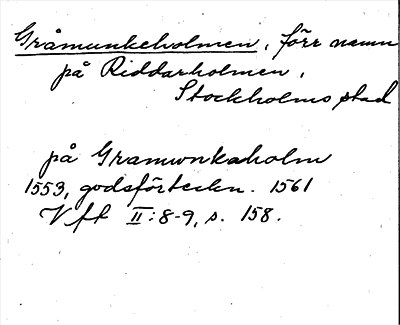 Gråmunkeholmen, förr namn
på Riddarholmen,
Stockholms stad
på Gramwnkaholm
1553, godsförteckn. 1561
Vfl II:8-9, s. 158.